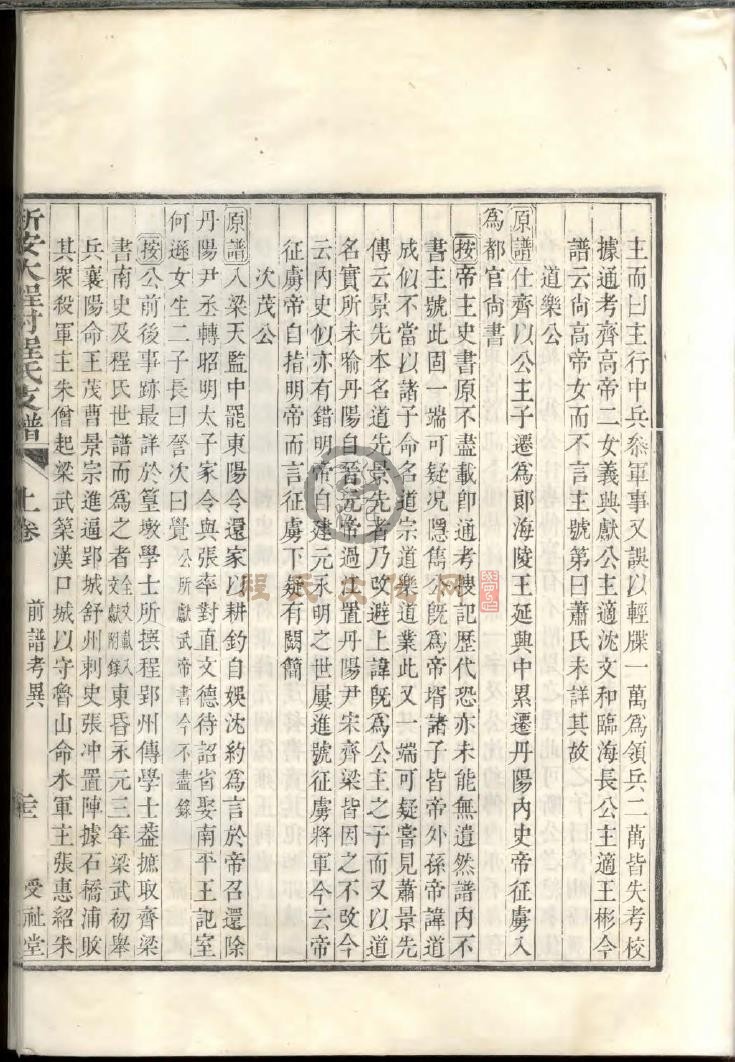 主而曰主行中兵叅軍事又誤以輕牒一萬爲領兵二萬皆失考校
據通考齊高帝二女義興獻公主適沈文和臨海長公主適王彬今
譜云尚高帝女而不言主號第曰蕭氏未詳其故
道樂公
原譜仕齊以公主子遷爲郎海陵王延興中累遷丹陽內史帝征虜入
爲都官尚書
按帝主史書原不盡載卽通考搜記歷代恐亦未能無遺然譜內不
書主號此固一端可疑况隱雋公旣爲帝壻諸子皆帝外孫帝諱道
成似不當以諸子命名道宗道樂道業此又一端可疑嘗見蕭景先
傳云景先本名道先景先者乃改避上諱旣爲公主之子而又以道
名實所未喻丹陽自晉元帝過江置丹陽尹宋齊梁皆因之不改今
云內史似亦有錯明帝自建元永明之世屢進號征虜將軍今云帝
征虜帝自指明帝而言征虜下疑有闕簡
次茂公
原譜入梁天監中罷東陽令還家以耕釣自娛沈約爲言於帝召還除
丹陽尹丞轉昭明太子家令與張率對直文德待詔省娶南平王記室
何遜女生二子長曰詧次曰覺公所獻武帝書今不盡錄
按公前後事跡最詳於篁墩學士所撰程郢州傳學士葢摭取齊梁
書南史及程氏世譜而爲之者全文載入文獻附錄東昏永元三年梁武初舉
兵襄陽命王茂曹景宗進逼郢城舒州刺史張冲置陣據石橋浦敗
其衆殺軍主朱僧起梁武築漢口城以守魯山命水軍主張惠紹朱
新安大程村程氏支譜
上卷
前譜考異
三
受祉堂
程氏文化网